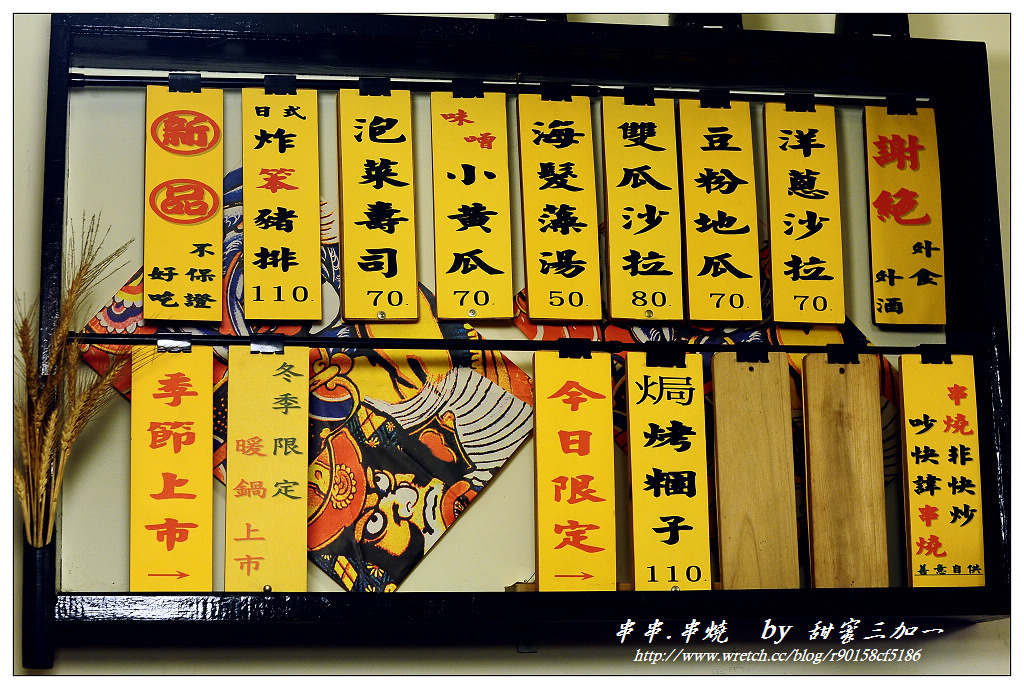 新品
不保證
好吃
日式
炸笨豬排
110.
泡菜壽司
70.
味噌
小黃瓜
70.
海髮藻湯
50.
雙瓜沙拉
80.
豆粉地瓜
70.
洋蔥沙拉
70.
謝絕
外食
外酒
季節上市
→
冬季限定
暖鍋上市
今日限定
→
焗烤糰子
110.
串燒非快炒
吵快諱串燒
善意自供
串串.串燒 by 甜蜜三加一
http://www.wretch.cc/blog/r90158cf5186